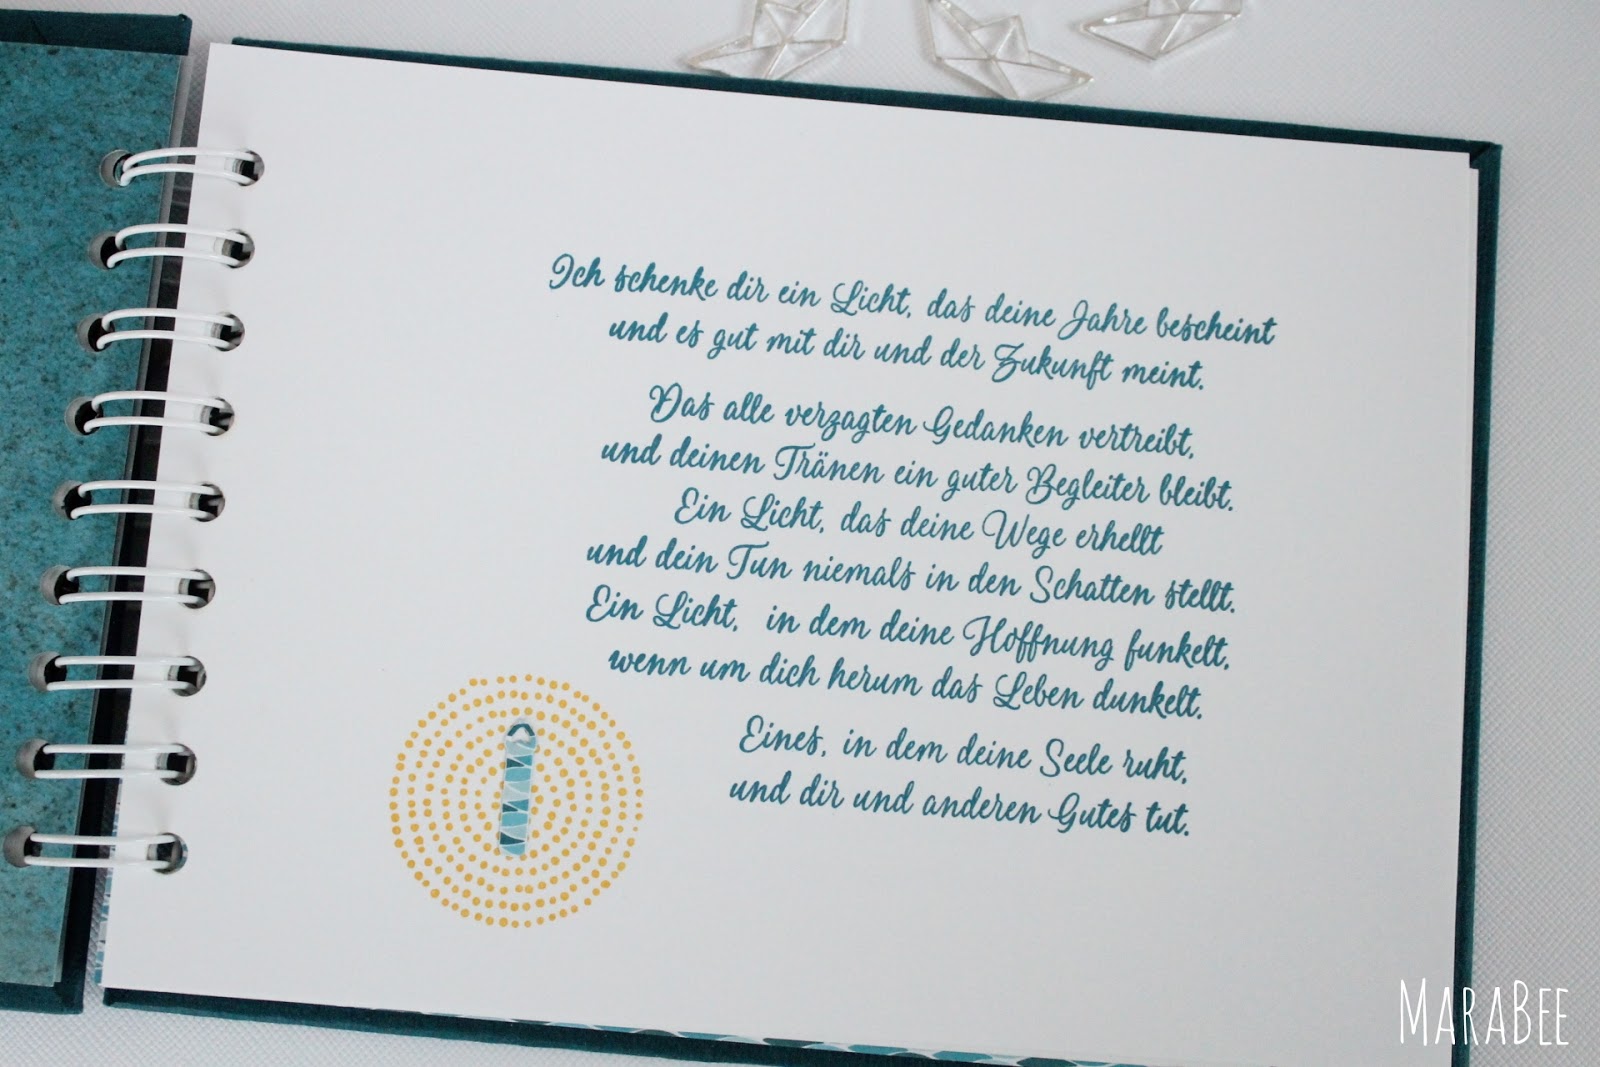 Ich schenke dir ein Licht, das deine Jahre bescheint
und es gut mit dir und der Zukunft meint.
Das alle verzagten Gedanken vertreibt,
und deinen Tränen ein guter Begleiter bleibt.
Ein Licht, das deine Wege erhellt
und dein Tun niemals in den Schatten stellt.
Ein Licht, in dem deine Hoffnung funkelt,
wenn um dich herum das Leben dunkelt.
Eines, in dem deine Seele ruht,
und dir und anderen Gutes tut.
MARABEE